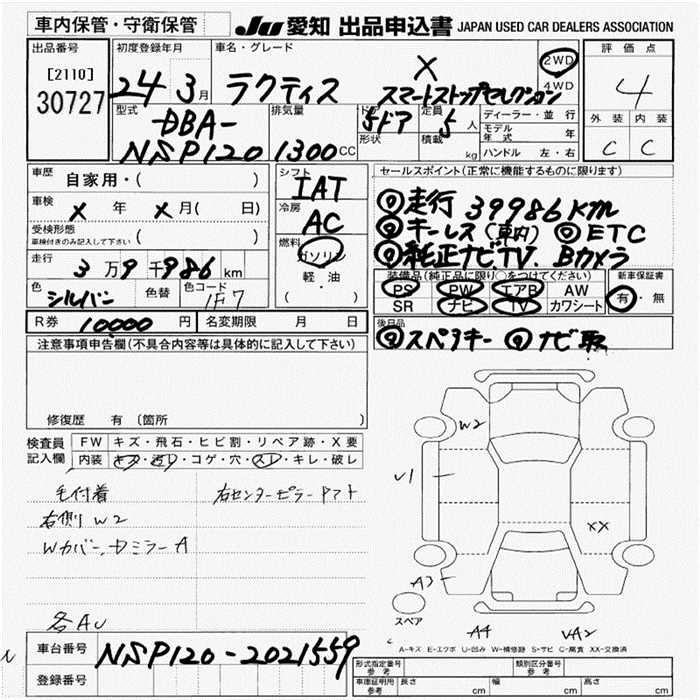 車内保管・守衛保管
JU 愛知 出品申込書 JAPAN USED CAR DEALERS ASSOCIATION
出品番号
[2110]
30727
初度登録年月
24 3月
車名・グレード
ラクティス X
スマートストップセレクション
2WD
4WD
評価点
4
外装 内装
C C
型式
DBA-
NSP120
排気量
1300cc
ドア
5ドア
形状
定員
5人
積載
kg
ディーラー・並行
モデル年式 年
ハンドル 左・右
車歴
自家用・( )
車検
X 年 X月( 日)
受検形態
車検付きのみ記入して下さい ( )
走行
3万9千986km
色
シルバー
色替
色コード
1F7
シフト
IAT
冷房
AC
燃料
ガソリン
軽・油
( )
セールスポイント(正常に機能するものに限ります)
◎走行 39986km
◎キーレス(車内) ◎ETC
◎純正ナビTV. Bカメラ
装備品(純正品に限り○をつけてください)
PS PW エアB AW
SR ナビ TV カワシート
新車保証書
有・無
R券 10000円
名変期限 月 日
後日品
◎スペアキー ◎ナビ取
注意事項申告欄(不具合内容等は具体的に記入して下さい)
修復歴 有 〔箇所 〕
検査員
記入欄
FW キズ・飛石・ヒビ割・リペア跡・X要
内装 キズ・汚レ・コゲ・穴・スレ・キレ・破レ
毛付着
右センターピラーアマト
右側W2
Wカバー、ドミラーA
各AU
W2
U1
XX
A2
A4
VA2
スペア
A-キズ E-エクボ U-凹み W-補修跡 S-サビ C-腐食 XX-交換済
車台番号
NSP120-2021559
登録番号
形式指定番号
参考
類別区分番号
参考
車庫証明用
参考
長さ cm 幅 cm 高さ cm